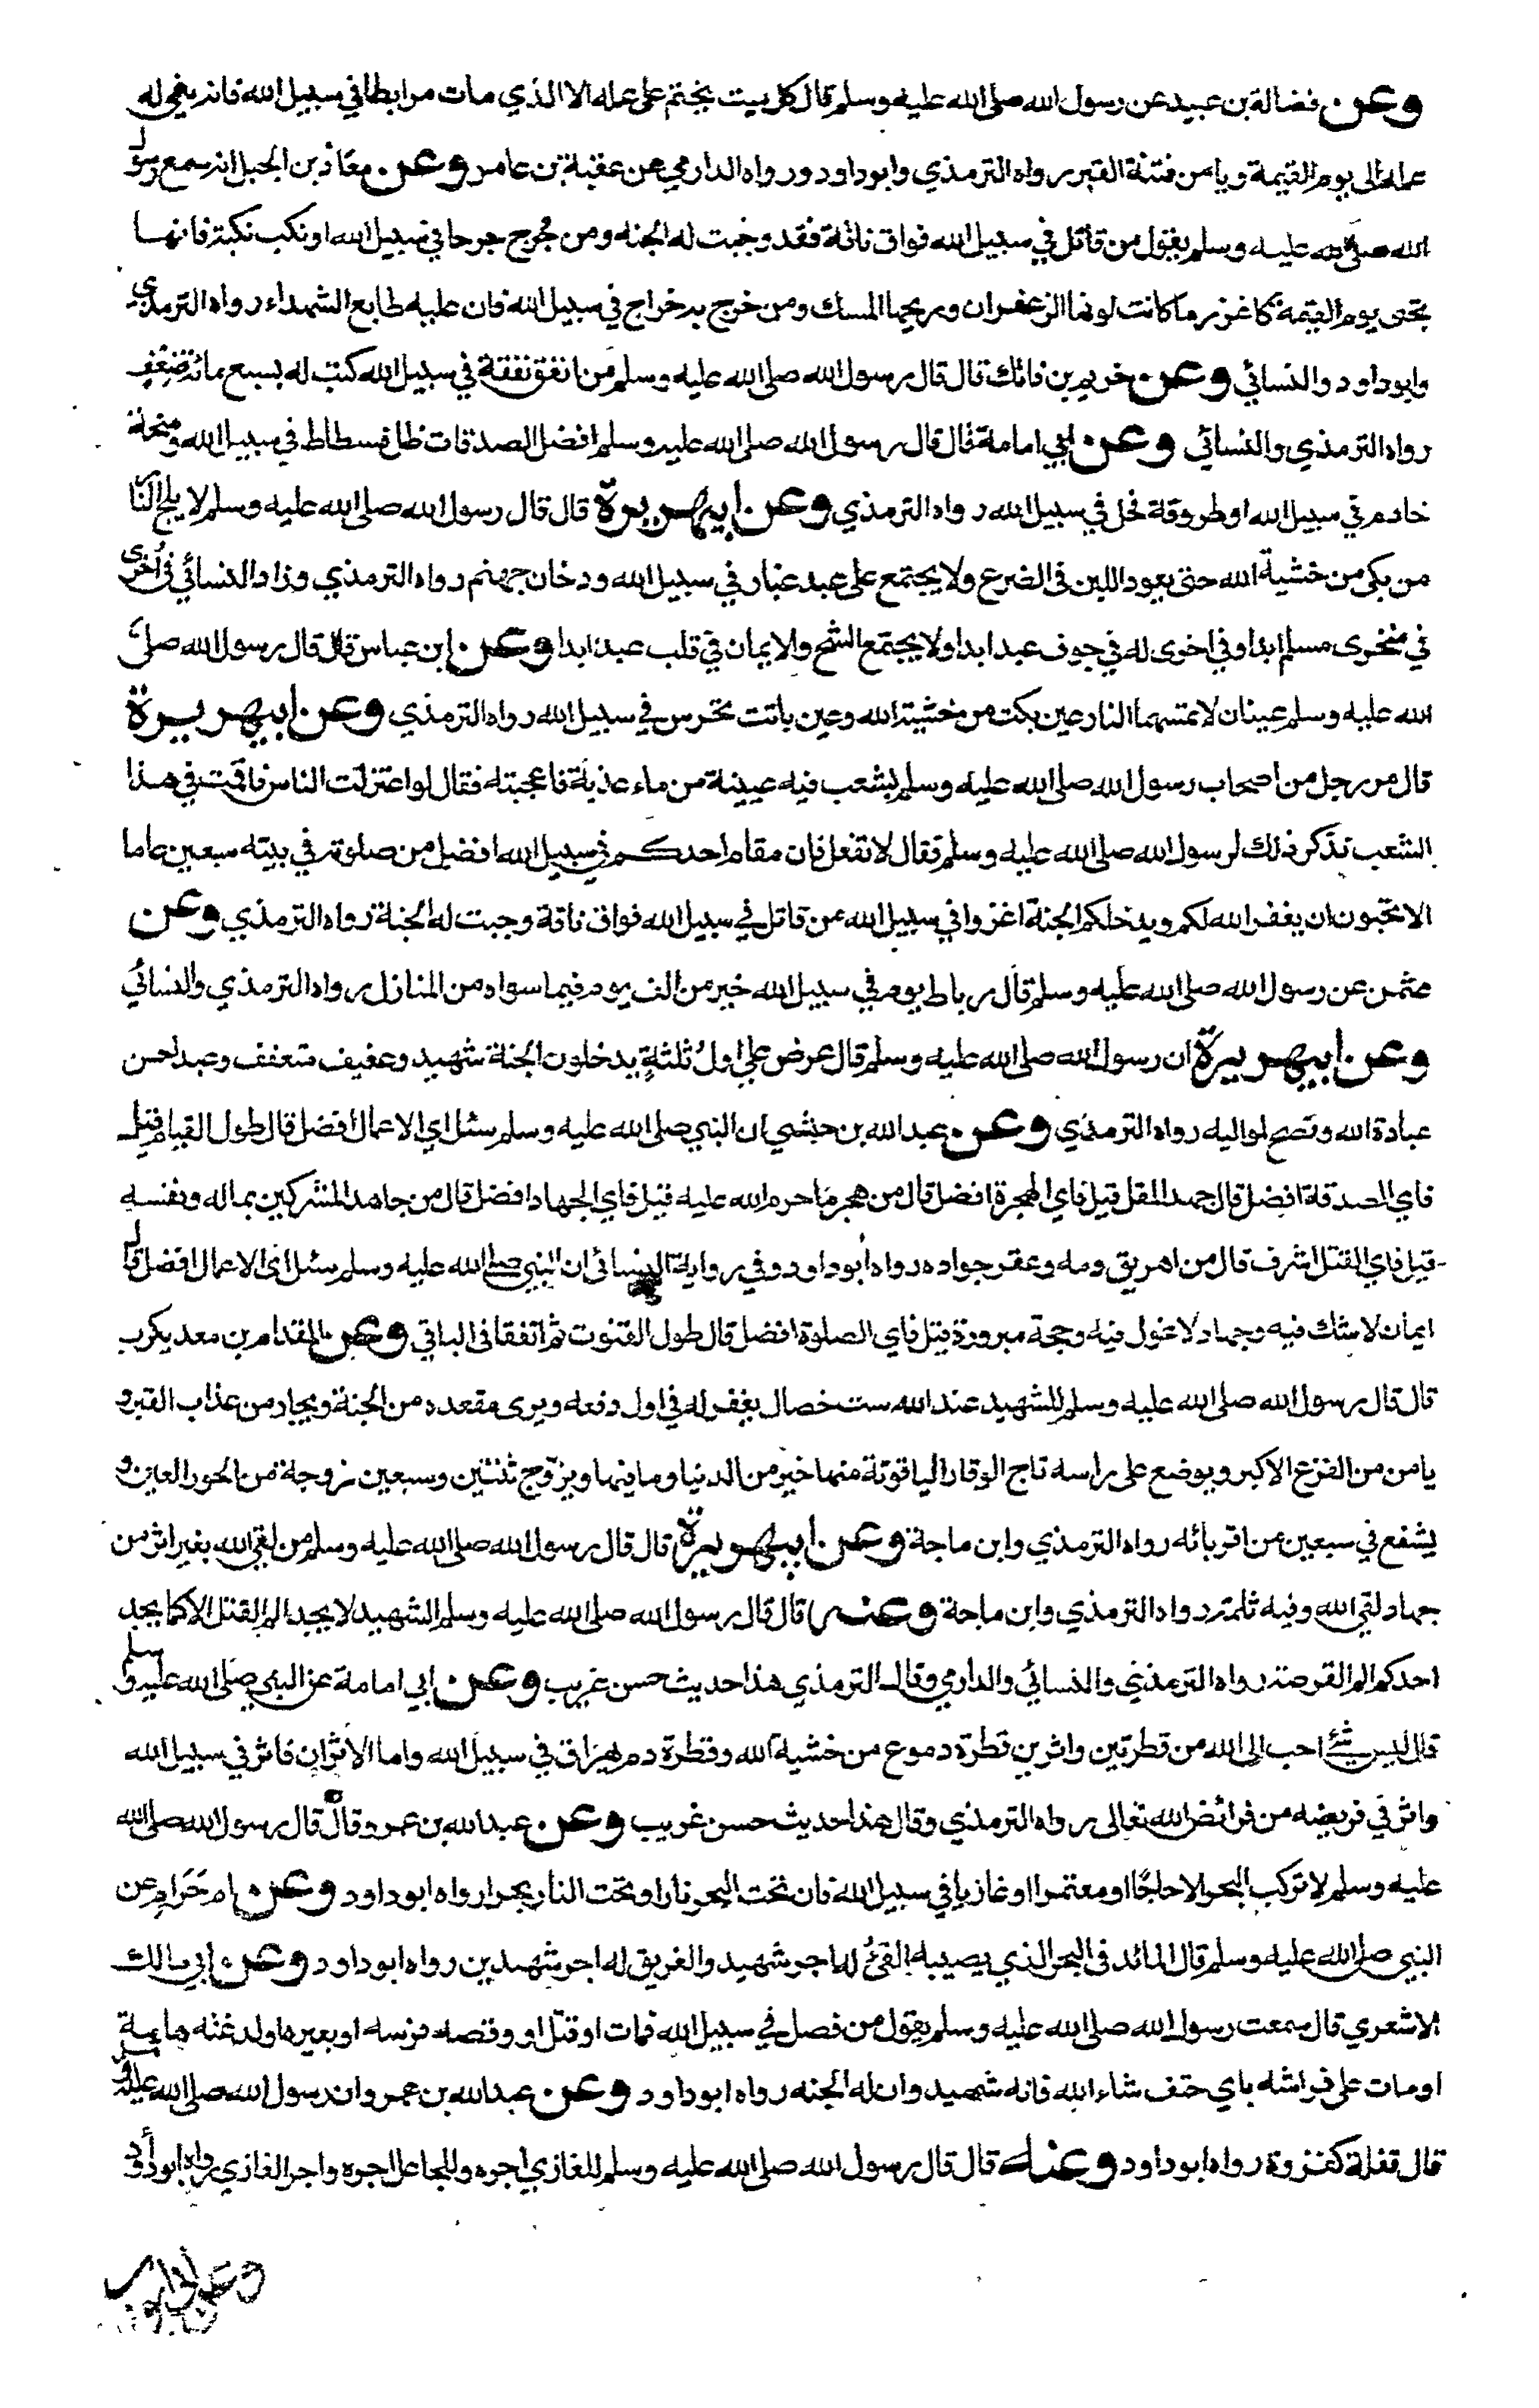 وعن فضالة بن عبيد عن رسول الله صلى الله عليه وسلم قال كل ميت يختم على عمله الا الذي مات مرابطا في سبيل الله فانه ينمى له
عمله الى يوم القيمة ويامن فتنة القبر رواه الترمذي وابوداود ورواه الدارمي عن عقبة بن عامر وعن معاذ بن الجبل انه سمع رسول
الله صلى الله عليه وسلم يقول من قاتل في سبيل الله فواق ناقة فقد وجبت له الجنه ومن جرح جرحا في سبيل الله او نكب نكبة فانها
تجئ يوم القيمة كاغزر ما كانت لونها الزعفران وريحها المسك ومن خرج به خراج في سبيل الله فان عليه طابع الشهداء رواه الترمذي
وابوداود والنسائي وعن خريم بن فاتك قال قال رسول الله صلى الله عليه وسلم من انفق نفقة في سبيل الله كتب له بسبع مائة ضعف
رواه الترمذي والنسائي وعن ابي امامة قال قال رسول الله صلى الله عليه وسلم افضل الصدقات ظل فسطاط في سبيل الله ومنحة
خادم في سبيل الله او طروقة فحل في سبيل الله رواه الترمذي وعن ابيهريرة قال قال رسول الله صلى الله عليه وسلم لا يلج النار
من بكى من خشية الله حتى يعود اللبن في الضرع ولا يجتمع على عبد غبار في سبيل الله ودخان جهنم رواه الترمذي وزاد النسائي في اخرى
في منخرى مسلم ابدا وفي اخرى له في جوف عبد ابدا ولا يجتمع الشح والايمان في قلب عبد ابدا وعن ابن عباس قال قال رسول الله صلى
الله عليه وسلم عينان لا تمسهما النار عين بكت من خشية الله وعين باتت تحرس في سبيل الله رواه الترمذي وعن ابيهريرة
قال مر رجل من اصحاب رسول الله صلى الله عليه وسلم بشعب فيه عيينة من ماء عذبة فاعجبته فقال لو اعتزلت الناس فاقمت في هذا
الشعب فذكر ذلك لرسول الله صلى الله عليه وسلم فقال لا تفعل فان مقام احدكم في سبيل الله افضل من صلوته في بيته سبعين عاما
الا تحبون ان يغفر الله لكم ويدخلكم الجنة اغزوا في سبيل الله من قاتل في سبيل الله فواق ناقة وجبت له الجنة رواه الترمذي وعن
عثمن عن رسول الله صلى الله عليه وسلم قال رباط يوم في سبيل الله خير من الف يوم فيما سواه من المنازل رواه الترمذي والنسائي
وعن ابيهريرة ان رسول الله صلى الله عليه وسلم قال عرض علي اول ثلثة يدخلون الجنة شهيد وعفيف متعفف وعبد احسن
عبادة الله ونصح لمواليه رواه الترمذي وعن عبد الله بن حبشي ان النبي صلى الله عليه وسلم سئل اي الاعمال افضل قال طول القيام قيل
فاي الصدقة افضل قال جهد المقل قيل فاي الهجرة افضل قال من هجر ما حرم الله عليه قيل فاي الجهاد افضل قال من جاهد المشركين بماله ونفسه
قيل فاي القتل اشرف قال من اهريق دمه وعقر جواده رواه ابوداود وفي رواية النسائي ان النبي صلى الله عليه وسلم سئل اى الاعمال افضل قال
ايمان لا شك فيه وجهاد لا غلول فيه وحجة مبرورة قيل فاي الصلوة افضل قال طول القنوت ثم اتفقا في الباقي وعن المقدام بن معديكرب
قال قال رسول الله صلى الله عليه وسلم للشهيد عند الله ست خصال يغفر له في اول دفعه ويرى مقعده من الجنة ويجار من عذاب القبر و
يامن من الفزع الاكبر ويوضع على راسه تاج الوقار الياقوتة منها خير من الدنيا وما فيها ويزوّج ثنتين وسبعين زوجة من الحور العين و
يشفع في سبعين من اقربائه رواه الترمذي وابن ماجة وعن ابيهريرة قال قال رسول الله صلى الله عليه وسلم من لقي الله بغير اثر من
جهاد لقي الله وفيه ثلمة رواه الترمذي وابن ماجة وعنه قال قال رسول الله صلى الله عليه وسلم الشهيد لا يجد الم القتل الا كما يجد
احدكم الم القرصة رواه الترمذي والنسائي والدارمي وقال الترمذي هذا حديث حسن غريب وعن ابي امامة عن النبي صلى الله عليه وسلم
قال ليس شئ احب الى الله من قطرتين واثرين قطرة دموع من خشية الله وقطرة دم يهراق في سبيل الله واما الاثران فاثر في سبيل الله
واثر في فريضه من فرائض الله تعالى رواه الترمذي وقال هذا حديث حسن غريب وعن عبد الله بن عمرو قال قال رسول الله صلى الله
عليه وسلم لا تركب البحر الا حاجًا او معتمرا او غازيا في سبيل الله فان تحت البحر نارا وتحت النار بحرا رواه ابوداود وعن ام حَرَام عن
النبي صلى الله عليه وسلم قال المائد في البحر الذي يصيبه القئ له اجر شهيد والغريق له اجر شهيدين رواه ابوداود وعن ابي مالك
الاشعري قال سمعت رسول الله صلى الله عليه وسلم يقول من فصل في سبيل الله فمات او قتل او وقصه فرسه او بعيره او لدغته هامة
او مات على فراشه باي حتف شاء الله فانه شهيد وان له الجنه رواه ابوداود وعن عبد الله بن عمرو ان رسول الله صلى الله عليه وسلم
قال قفلة كغزوة رواه ابوداود وعنه قال قال رسول الله صلى الله عليه وسلم للغازي اجره وللجاعل اجره واجر الغازي رواه ابوداود